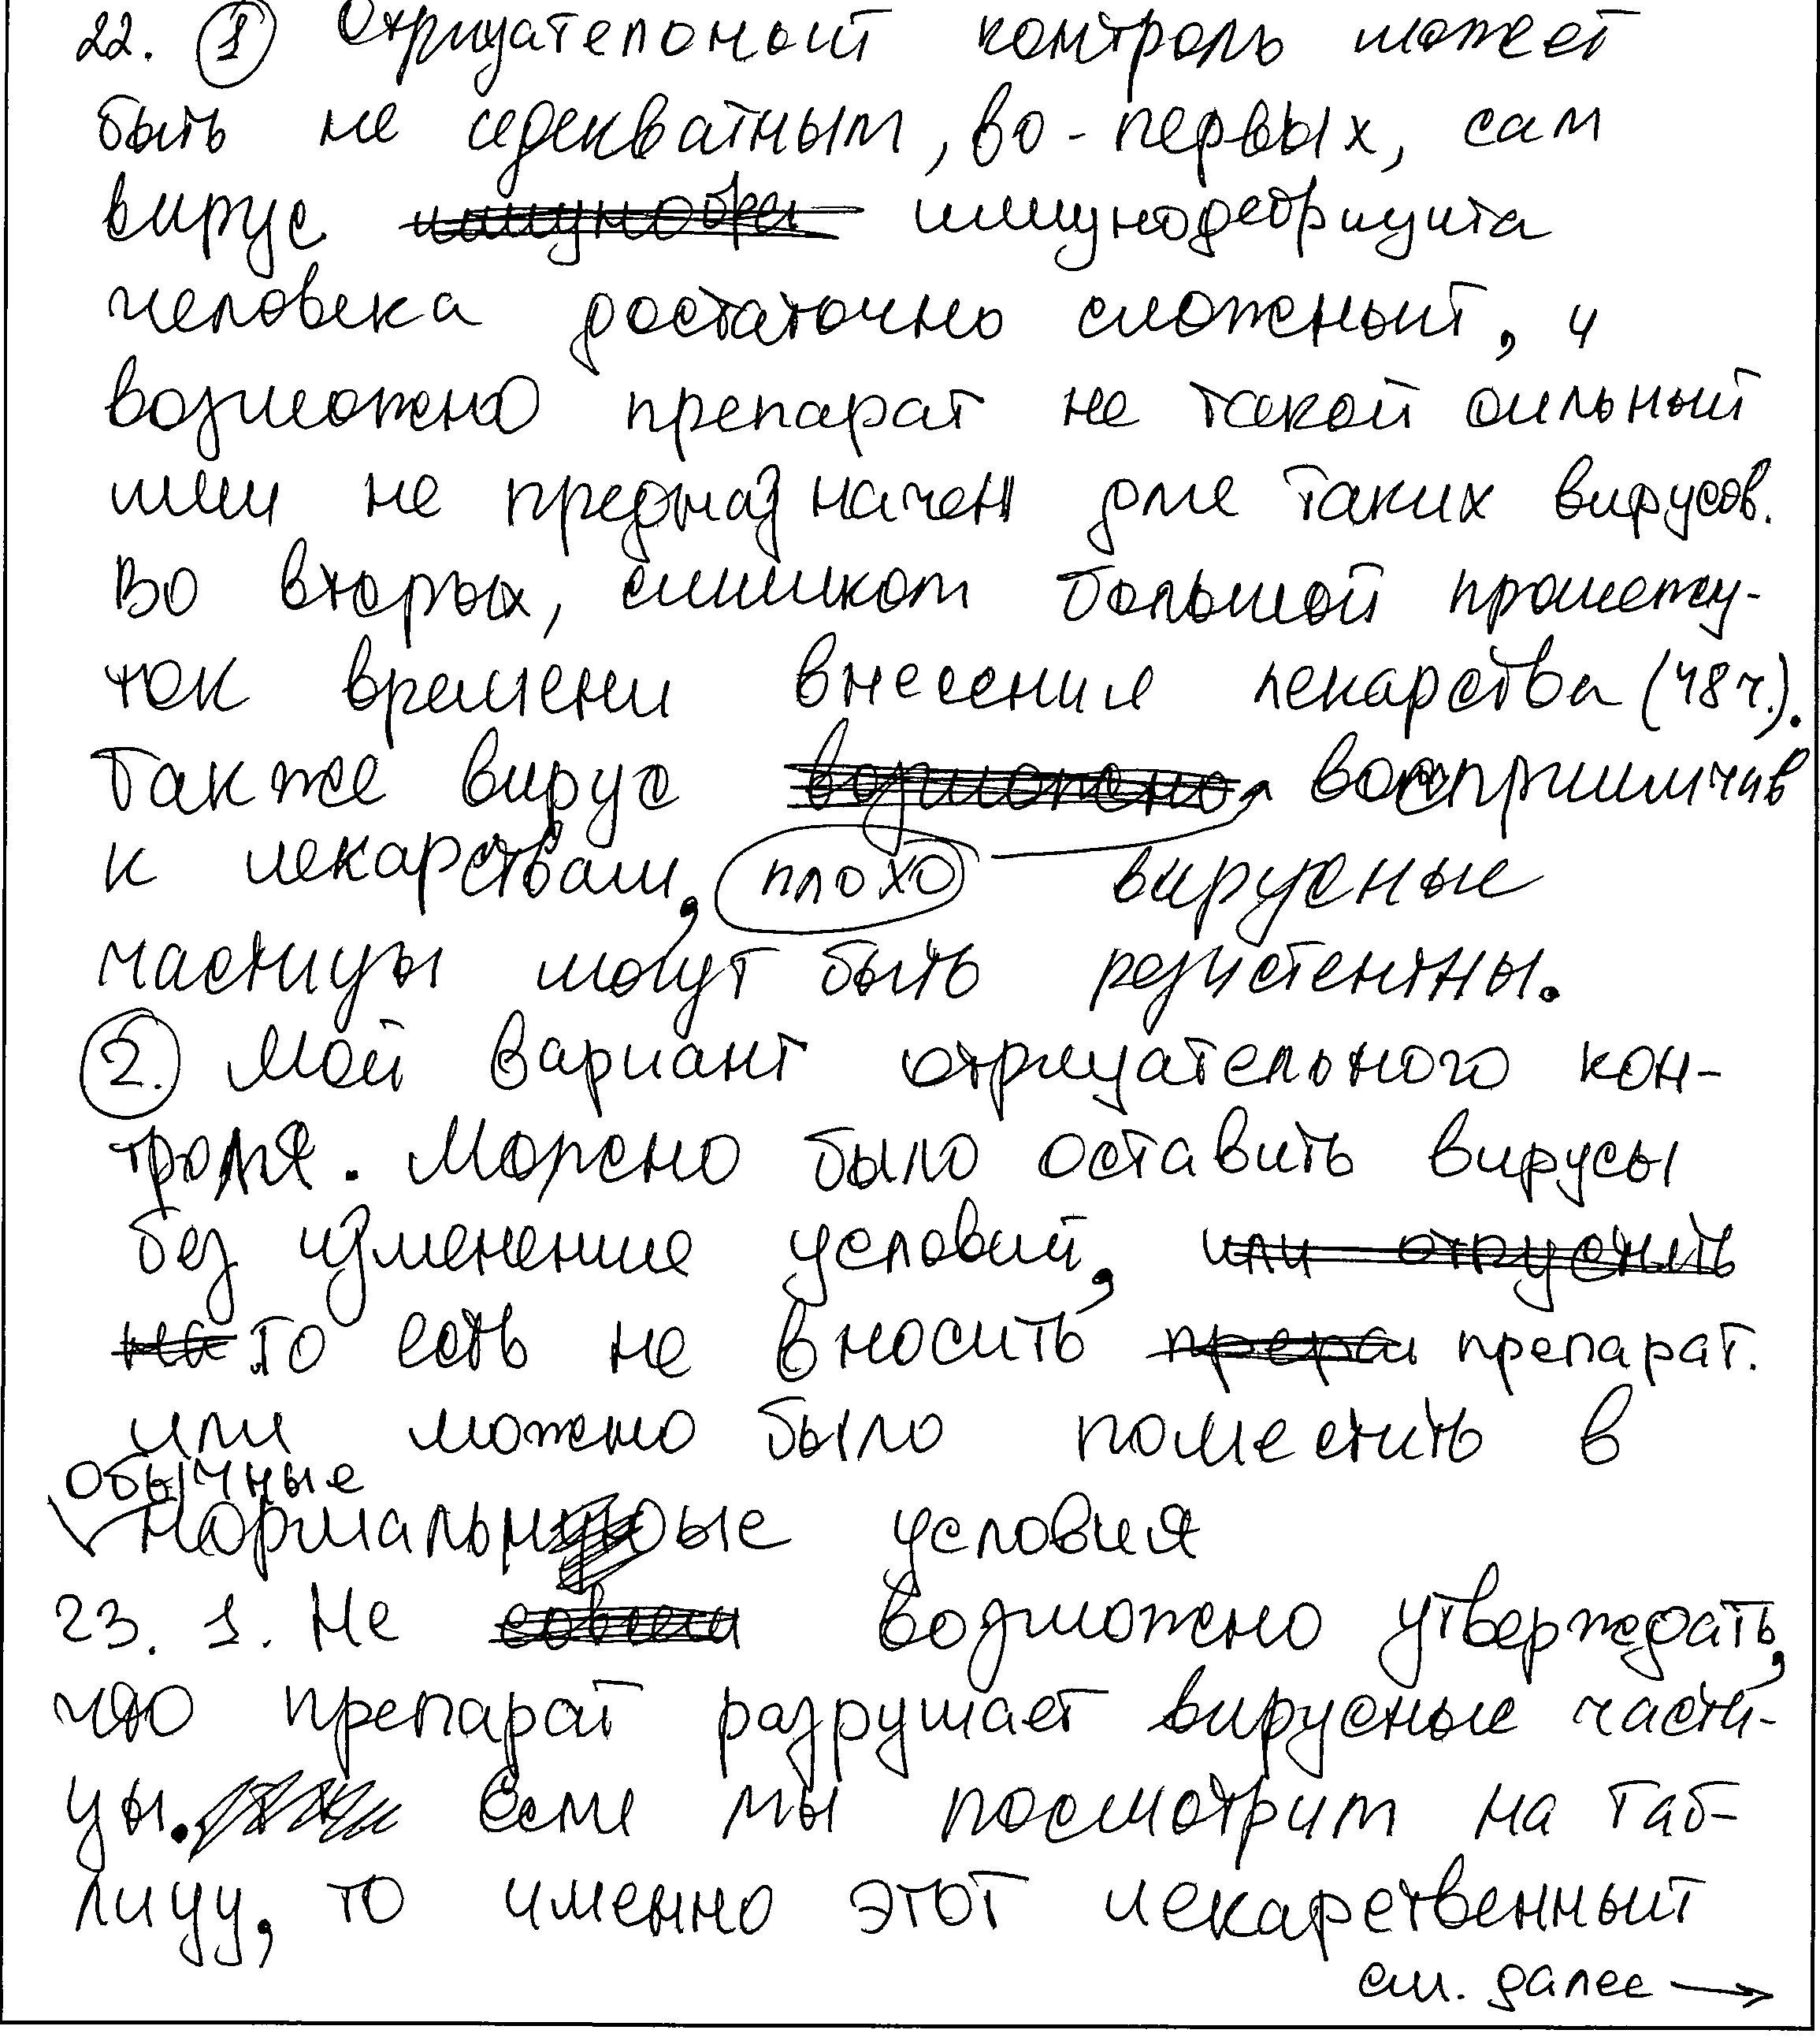 22. 1 Отрицательный контроль может
быть не адекватным, во-первых, сам
вирус иммунодефицита
человека достаточно сложный, и
возможно препарат не такой сильный
или не предназначен для таких вирусов.
Во вторых, слишком большой промежу-
ток времени внесения лекарства (48 ч.).
Также вирус восприимчив
к лекарствам, плохо вирусные
частицы могут быть резистентны.
2. Мой вариант отрицательного кон-
троля. Можно было оставить вирусы
без изменение условий, или отпустить
на то есть не вносить препарат.
или можно было поместить в
обычные
нормальные условия
23. 1. Не возможно утверждать,
что препарат разрушает вирусные части-
цы. Если мы посмотрим на таб-
лицу, то именно этот лекарственный
см. далее →